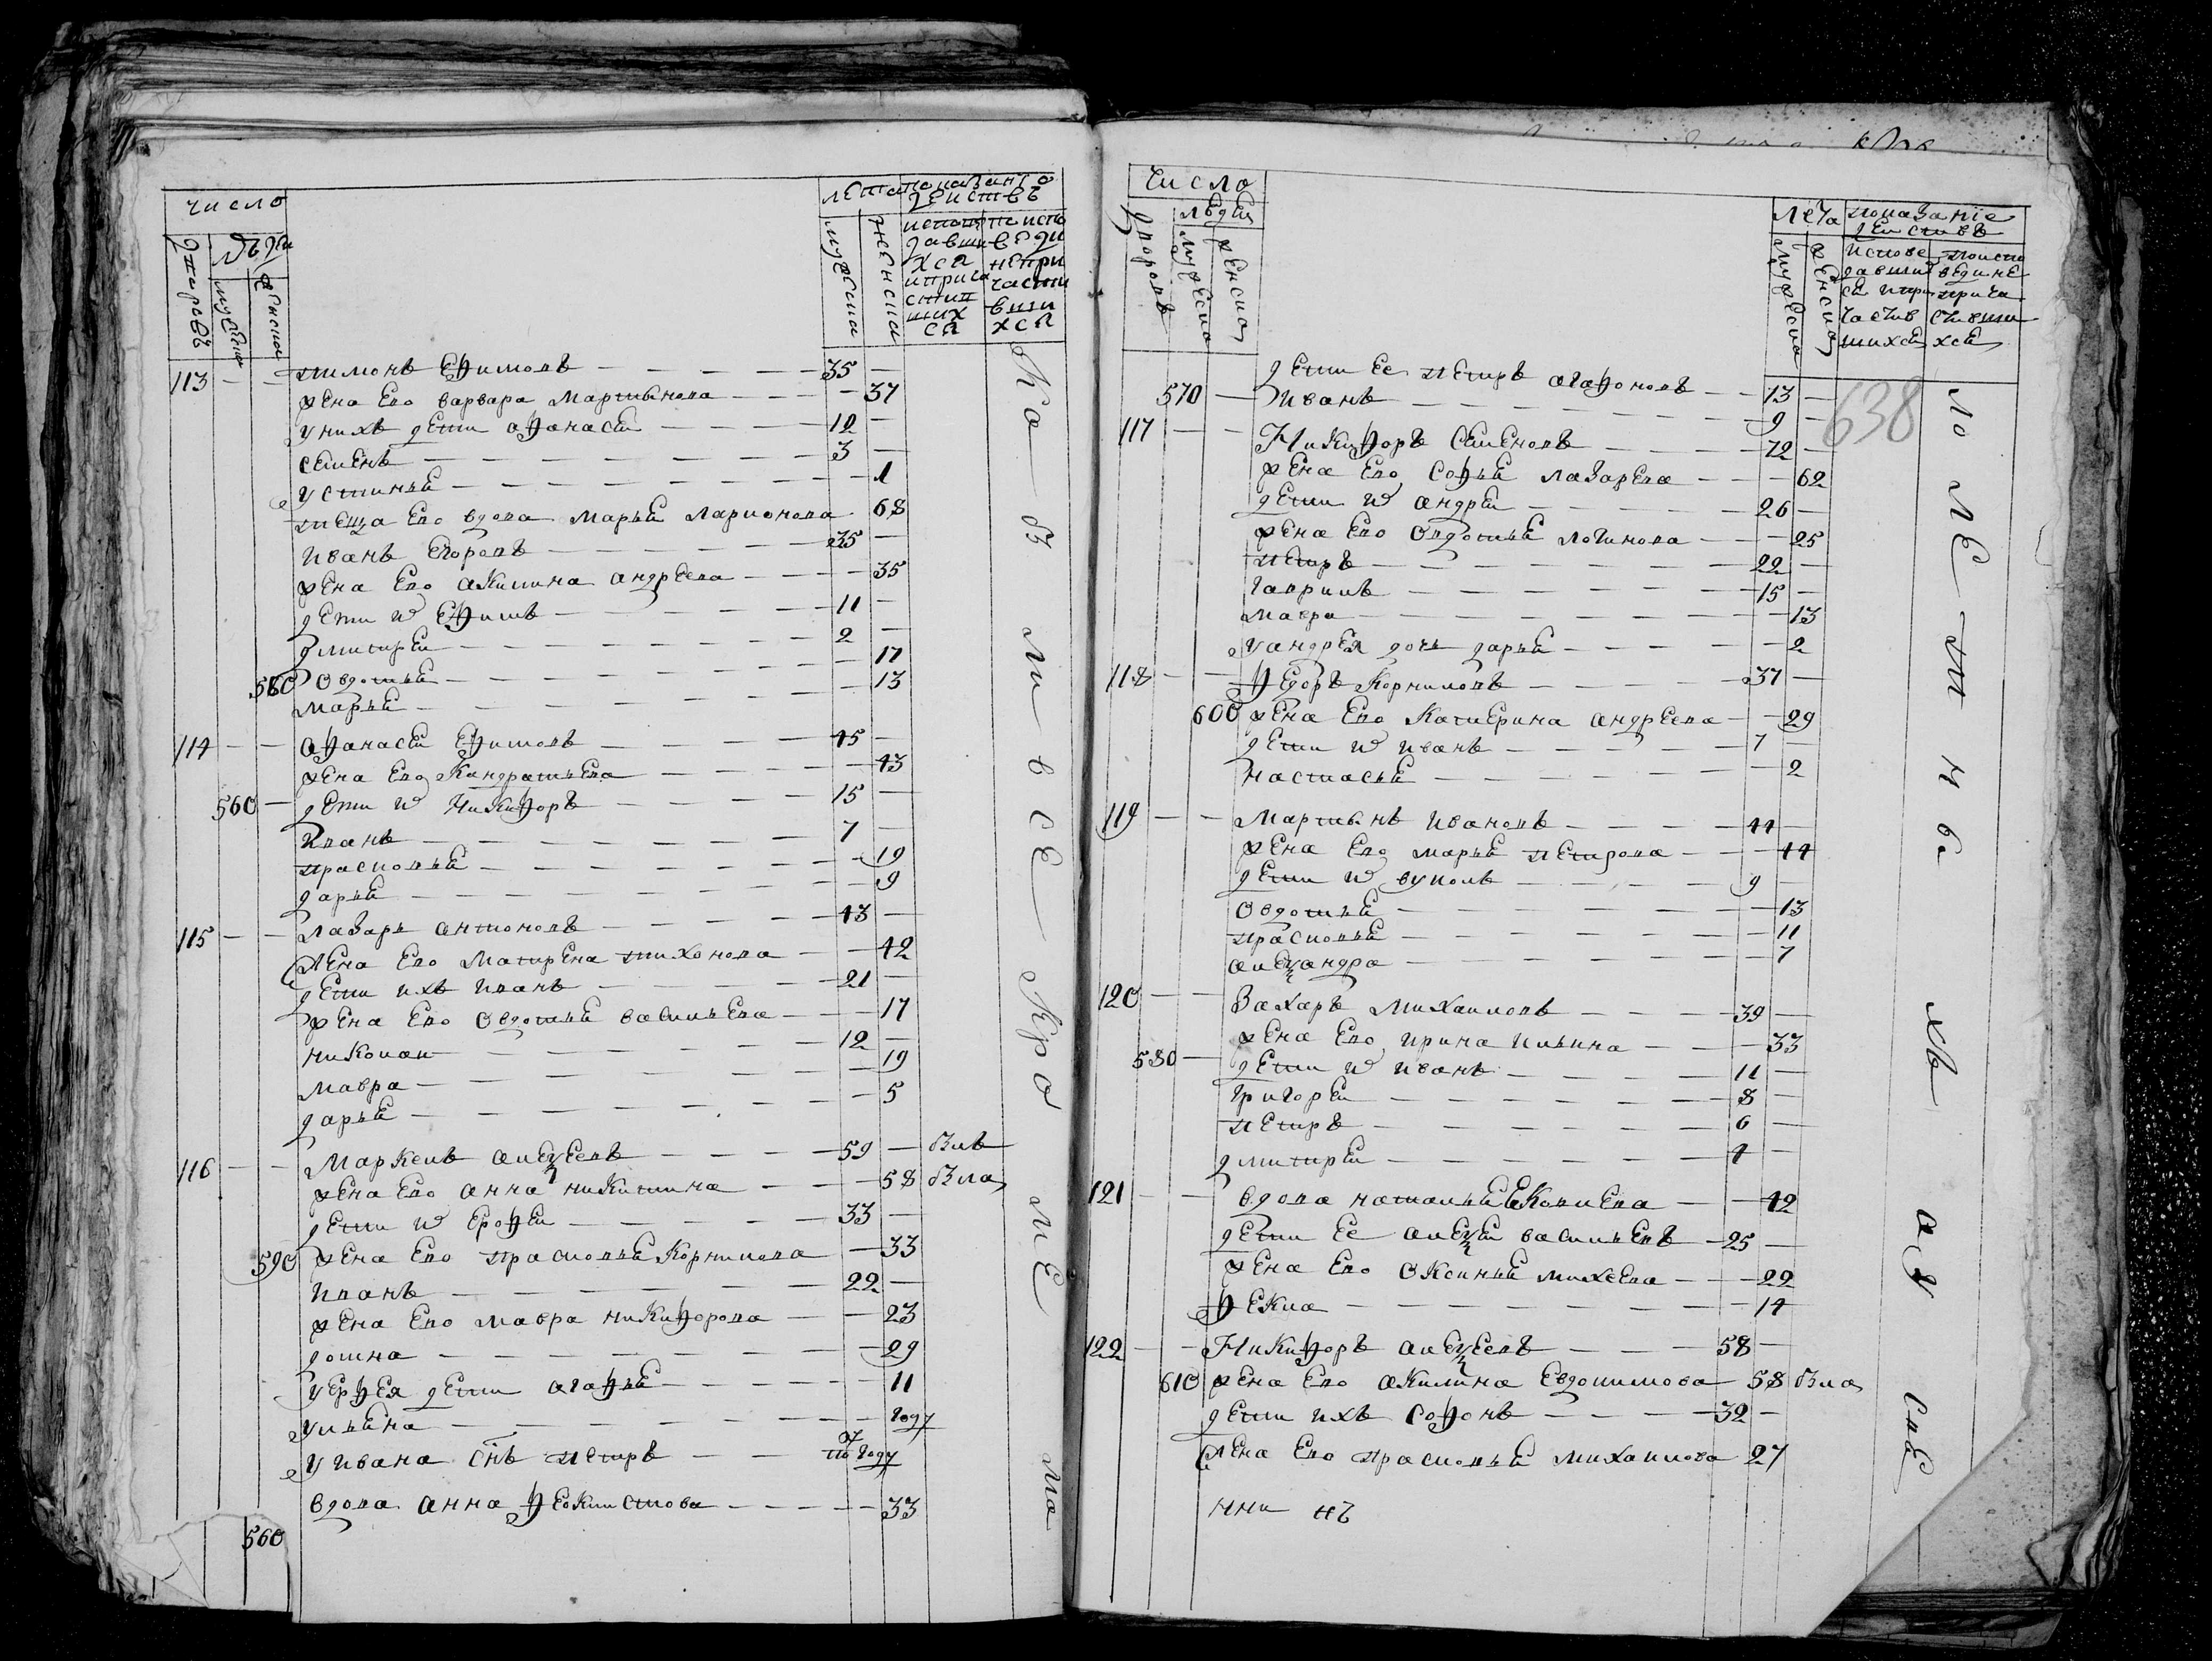 число
дворовъ
людеи
мужска
женска
лета
показанiе
деиствъ
мужеска
женска
исповедавшихся и причастившихся
по исповеди не причастившихся
113 — — тимонъ Ефимовъ — 35 —
жена Его варвара мартынова — 37
у нихъ дети афанасеи — 12 —
семенъ — 3 —
устинья — 1
теща Его вдова марья ларионова 68
иванъ Егоровъ — 35 —
жена Его акилина андреева — 35
дети их Ефимъ — 11 —
дмитреи — 2 —
овдотья — 17
580 марья — 13
114 — — афанасеи Ефимовъ — 45 —
жена Его кандратьева — 43
560 — дети их Никифоръ — 15 —
иванъ — 7 —
прасковья — 19
дарья — 9
115 — — лазарь антоновъ — 43 —
жена Его матрена тихонова — 42
дети ихъ иванъ — 21 —
жена Его овдотья васильева — 17
николаи — 12 —
мавра — 19
дарья — 5
116 — — маркелъ алексеевъ — 59 — былъ
жена Его анна никитина — 58 была
дети их Ерофеи — 33 —
590 жена Его прасковья корнилова — 33
иванъ — 22 —
жена Его мавра никифорова — 23
домна — 29
у Ерфея дети агафья — 11
ульяна — году
у ивана снъ петръ — по году
вдова анна феоктистова — 33
560
ка з ли все кро ме ма
число
дворовъ
людеи
мужеска
женска
638
лета
показанiе
деиствъ
мужеска
женска
исповедавшихся и причастившихся
по исповеди не причастившихся
дети ее петръ агафоновъ — 13 —
570 — иванъ — 9 —
117 — — Никифоръ семеновъ — 72 —
жена Его софья лазарева — 62
дети их андреи — 26 —
жена Его овдотья логинова — 25
петръ — 22 —
гаврилъ — 15 —
мавра — 13
у андрея дочь дарья — 2
118 — — федоръ корниловъ — 37 —
600 жена Его катерина андреева — 29
дети их иванъ — 7 —
настасья — 2
119 — — мартынъ ивановъ — 44 —
жена Его марья петрова — 44
дети их вуколъ — 9 —
овдотья — 13
прасковья — 11
александра — 7
120 — — захаръ михаиловъ — 39 —
жена Его ирина ильина — 33
580 — дети их иванъ — 11 —
григореи — 8 —
петръ — 6 —
дмитреи — 4 —
121 — — вдова наталья — 42
дети Ее алексеи васильевъ — 25 —
жена Его оксинья михеева — 22
фекла — 14
122 — — Никифоръ алексеевъ — 58 —
610 жена Его акилина Евдокимова 58 была
дети ихъ софонъ — 32 —
жена Его прасковья михаилова 27